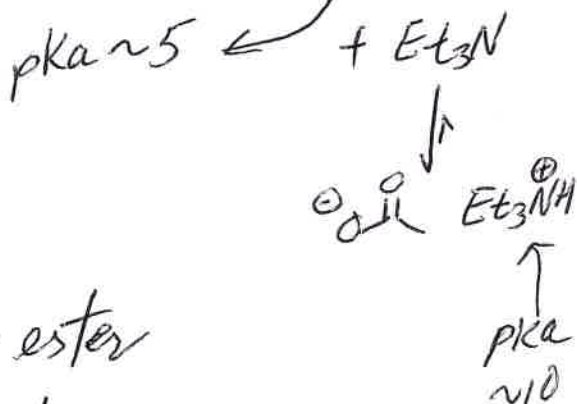 pKa ~ 5 ← + Et₃N
⇌
⊖O O Et₃N⊕H
ester ↑
pKa
~10